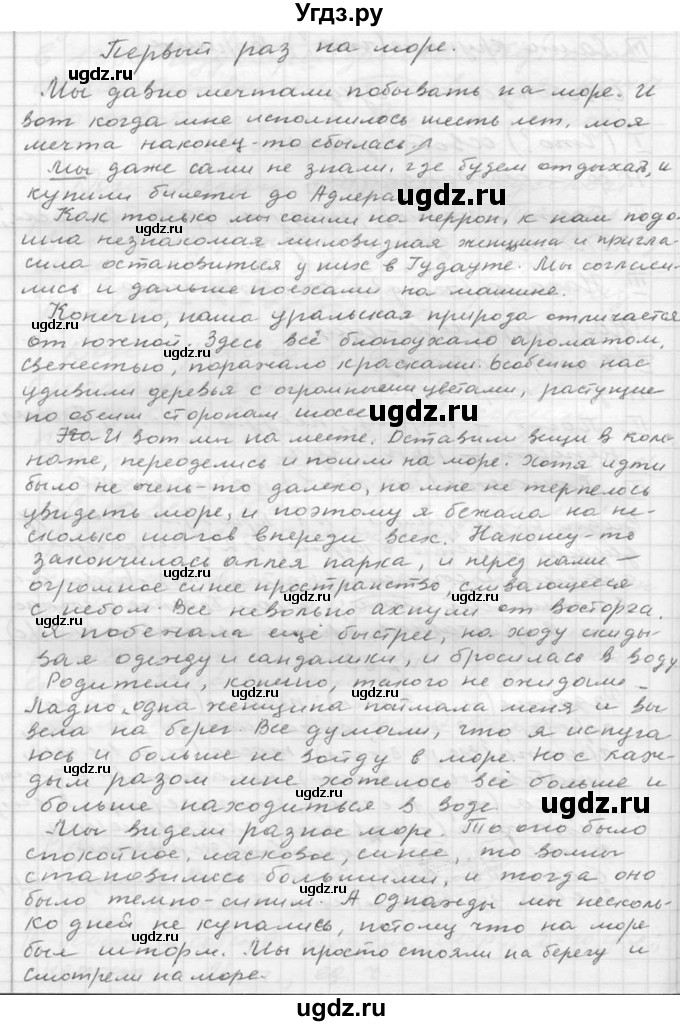 Угдз.ру
Первый раз на море.
Мы давно мечтали побывать на море. И
вот когда мне исполнилось шесть лет, моя
мечта наконец-то сбылась.
Мы даже сами не знали, где будем отдыхать, и
купили билеты до Адлера
Как только мы сошли на перрон, к нам подо-
шла незнакомая миловидная женщина и пригла
сила остановиться у них в Гудауте. Мы согласи-
лись и дальше поехали на машине.
Конечно, наша уральская природа отличается
от южной. Здесь всё благоухало ароматом,
свежестью, поражало красками. Особенно нас
удивили деревья с огромными цветами, растущие
по обеим сторонам шоссе
И вот мы на месте. Оставили вещи в ком-
нате, переоделись и пошли на море. Хотя идти
было не очень-то далеко, но мне не терпелось
увидеть море, и поэтому я бежала на не-
сколько шагов впереди всех. Наконец-то
закончилась аллея парка, и перед нами —
огромное синее пространство, сливающееся
с небом. Все невольно ахнули от восторга.
Я побежала ещё быстрее, на ходу скиды-
вая одежду и сандалики, и бросилась в воду
Родители, конечно, такого не ожидали
Ладно, одна женщина поймала меня и вы
вела на берег. Все думали, что я испуга
юсь и больше не войду в море. Но с каж-
дым разом мне хотелось всё больше и
больше находиться в воде
Мы видели разное море. То оно было
спокойное, ласковое, синее, то волны
становились большими, и тогда оно
было темно-синим. А однажды мы несколь-
ко дней не купались, потому что на море
был шторм. Мы просто стояли на берегу и
смотрели на море.
ugdz.ru